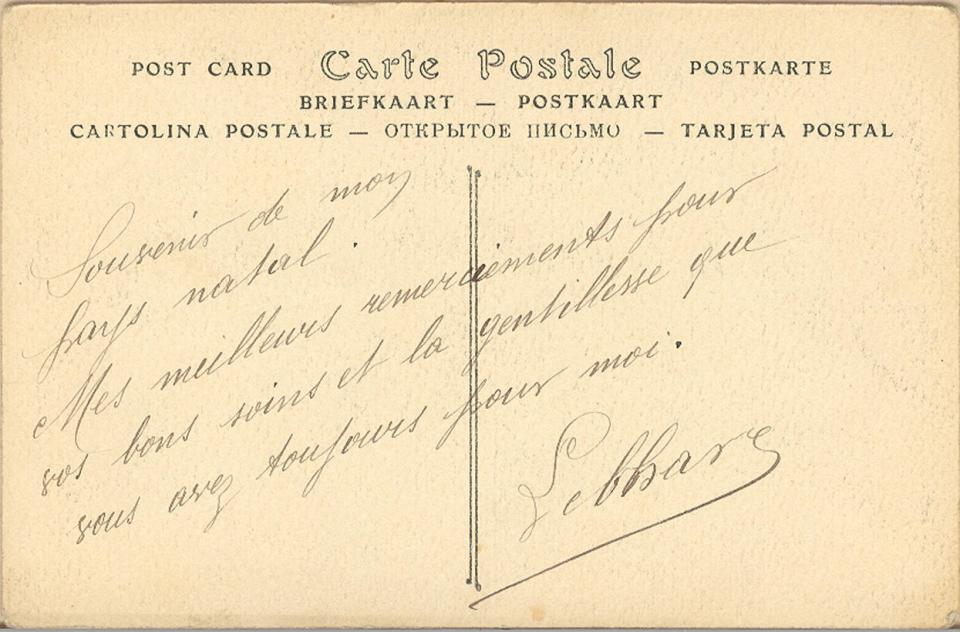 POST CARD Carte Postale POSTKARTE
BRIEFKAART — POSTKAART
CARTOLINA POSTALE — ОТКРЫТОЕ ПИСЬМО — TARJETA POSTAL
Souvenir de mon
pays natal.
Mes meilleurs remerciements pour
vos bons soins et la gentillesse que
vous avez toujours pour moi.